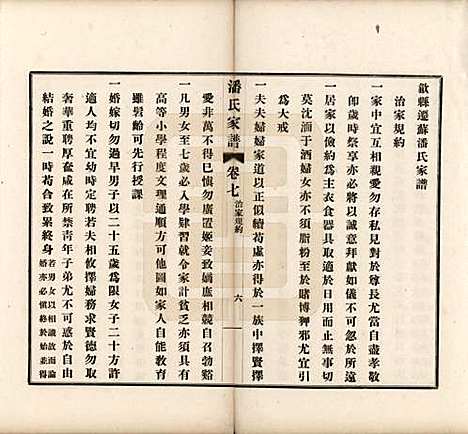 歙縣遷蘇潘氏家譜
治家規約
一家中宜相親相愛勿存私見對於尊長尤當自盡孝敬
卽歲時祭享亦以盡志盡誠獻如儀不可忽於所遠
一居家以儉約爲主衣食器具取適於日用而止
莫沈湎于酒婦女亦不須脂粉至於賭博狎邪尤宜引
爲大戒
一夫夫婦婦家道以正似續苟虛亦得於一族中擇賢擇
潘氏家譜
卷七
治家規約
六
愛非萬不得已愼勿廣置姬妾致嫡庶相競自召勃谿
一凡男女至七歲必入學肄習就令家計貧乏亦須具有
高等小學程度文理通順方可他圖如家人自能教育
雖髫齡可先行授課
一婚嫁切勿過早男子以二十五歲爲限女子二十方許
適人均不宜預定聘若夫相攸擇婦務求賢德勿取
奢華重聘厚奩咸在所禁靑年子弟尤不可惑於自由
結婚之說一時苟合致累終身
若男女以相識故而論
婚亦必愼終於始並得